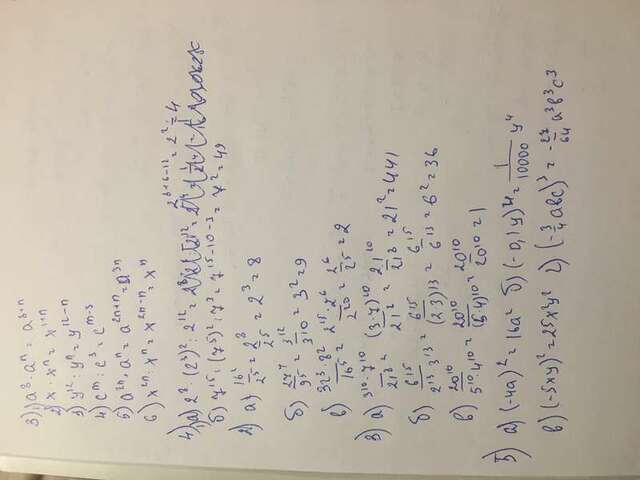 3) 1) a⁸·aⁿ = a⁸⁺ⁿ
2) x·xⁿ = x¹⁺ⁿ
3) y¹²:yⁿ = y¹²⁻ⁿ
4) cᵐ:c³ = cᵐ⁻³
5) a²ⁿ·aⁿ = a²ⁿ⁺ⁿ = a³ⁿ
6) x²ⁿ:xⁿ = x²ⁿ⁻ⁿ = xⁿ
4) 1) а) 2⁸·(2³)²:2¹² = 2⁸⁺⁶⁻¹² = 2² = 4
б) 7¹⁵:(7⁵)²:7³ = 7¹⁵⁻¹⁰⁻³ = 7² = 49
2) а) 16²/2⁵ = 2⁸/2⁵ = 2³ = 8
б) 27⁴/9⁵ = 3¹²/3¹⁰ = 3² = 9
в) 32³·8²/16⁵ = 2¹⁵·2⁶/2²⁰ = 2⁶/2⁵ = 2
3) а) 3¹⁰·7¹⁰/21⁸ = (3·7)¹⁰/21⁸ = 21¹⁰/21⁸ = 21² = 441
б) 6¹⁵/2¹³·3¹³ = 6¹⁵/(2·3)¹³ = 6¹⁵/6¹³ = 6² = 36
в) 20¹⁰/5¹⁰·4¹⁰ = 20¹⁰/(5·4)¹⁰ = 20¹⁰/20¹⁰ = 1
5) а) (-4a)² = 16a² б) (-0,1y)⁴ = 1/10000 y⁴
в) (-5xy)² = 25x²y² г) (-3/4 abc)³ = -27/64 a³b³c³